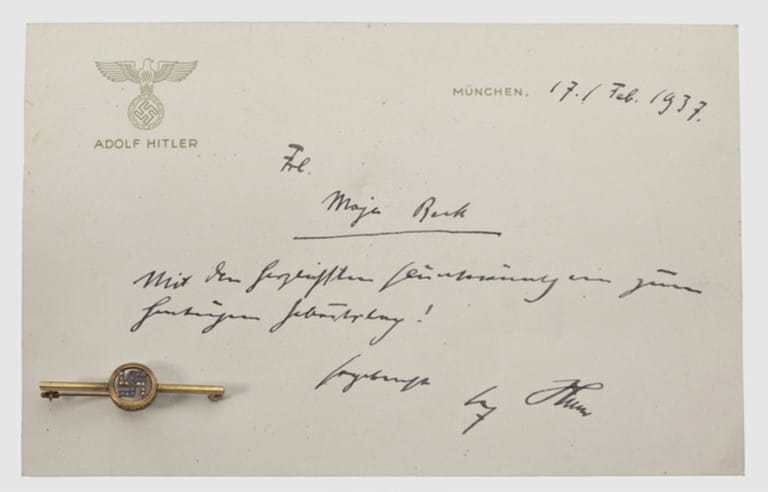 MÜNCHEN, 17./Feb. 1937.
ADOLF HITLER
Frl.
Maja Beck
Mit den herzlichsten Glückwünschen zum
heutigen Geburtstag!
ergebenst